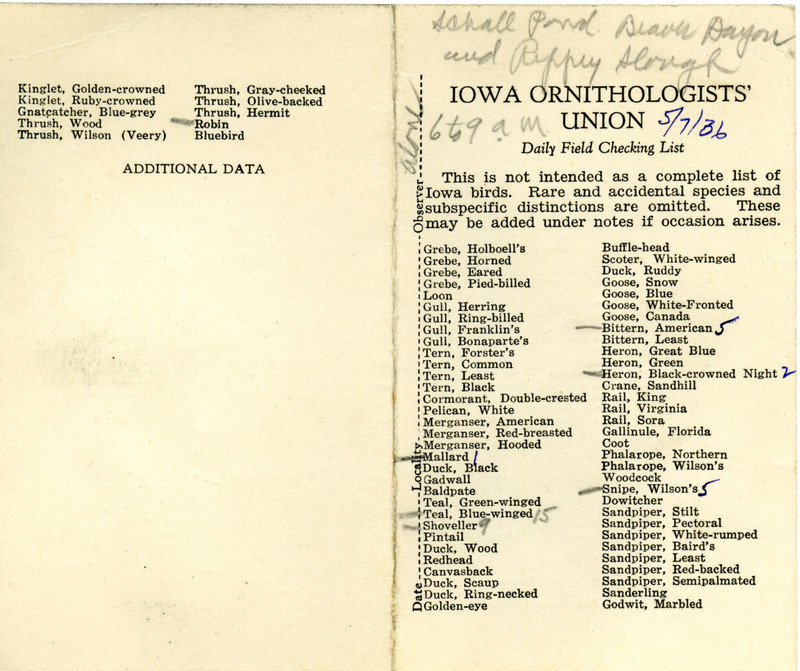 Kinglet, Golden-crowned
Kinglet, Ruby-crowned
Gnatcatcher, Blue-grey
Thrush, Wood
Thrush, Wilson (Veery)
Thrush, Gray-cheeked
Thrush, Olive-backed
Thrush, Hermit
Robin
Bluebird
ADDITIONAL DATA
Schall Pond. Beaver Bayou
and Rippey Slough
alone
6 to 9 a.m
IOWA ORNITHOLOGISTS'
UNION 5/7/36
Daily Field Checking List
This is not intended as a complete list of
Iowa birds. Rare and accidental species and
subspecific distinctions are omitted. These
may be added under notes if occasion arises.
Date Locality Observer
Grebe, Holboell's
Grebe, Horned
Grebe, Eared
Grebe, Pied-billed
Loon
Gull, Herring
Gull, Ring-billed
Gull, Franklin's
Gull, Bonaparte's
Tern, Forster's
Tern, Common
Tern, Least
Tern, Black
Cormorant, Double-crested
Pelican, White
Merganser, American
Merganser, Red-breasted
Merganser, Hooded
Mallard 1
Duck, Black
Gadwall
Baldpate
Teal, Green-winged
Teal, Blue-winged 15
Shoveller 9
Pintail
Duck, Wood
Redhead
Canvasback
Duck, Scaup
Duck, Ring-necked
Golden-eye
Buffle-head
Scoter, White-winged
Duck, Ruddy
Goose, Snow
Goose, Blue
Goose, White-Fronted
Goose, Canada
Bittern, American 5
Bittern, Least
Heron, Great Blue
Heron, Green
Heron, Black-crowned Night 2
Crane, Sandhill
Rail, King
Rail, Virginia
Rail, Sora
Gallinule, Florida
Coot
Phalarope, Northern
Phalarope, Wilson's
Woodcock
Snipe, Wilson's 5
Dowitcher
Sandpiper, Stilt
Sandpiper, Pectoral
Sandpiper, White-rumped
Sandpiper, Baird's
Sandpiper, Least
Sandpiper, Red-backed
Sandpiper, Semipalmated
Sanderling
Godwit, Marbled